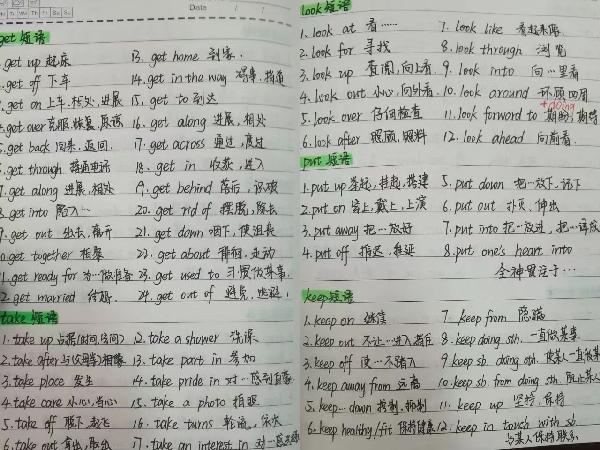 Date
get 短语
get up 起床
get off 下车
get on 上车,相处,进展
get over 克服,恢复,原谅
get back 回来,返回
get through 接通电话
get along 进展,相处
get into 陷入…
get out 出去,离开
get together 相聚
get ready for 为…做准备
get married 结婚
13. get home 到家
14. get in the way 碍事,挡道
15. get to 到达
16. get along 进展,相处
17. get across 通过,度过
18. get in 收获,进入
19. get behind 落后,识破
20. get rid of 摆脱,除去
21. get down 咽下,使沮丧
22. get about 徘徊,走动
23. get used to 习惯做某事
24. get out of 避免,逃避
take 短语
1. take up 占据(时间,空间)
2. take after 与(父母等)相像
3. take place 发生
4. take care 小心,当心
5. take off 脱下,起飞
6. take out 拿出,取出
12. take a shower 洗澡
13. take part in 参加
14. take pride in 对…感到自豪
15. take a photo 拍照
16. take turns 轮流
17. take an interest in 对…感兴趣
look 短语
1. look at 看……
2. look for 寻找
3. look up 查阅,向上看
4. look out 小心,向外看
5. look over 仔细检查
6. look after 照顾,照料
7. look like 看起来像
8. look through 浏览
9. look into 向…里看
10. look around 环顾四周
+doing
11. look forward to 期盼,期待
12. look ahead 向前看
put 短语
1. put up 举起,挂起,搭建
2. put on 穿上,戴上,上演
3. put away 把…放好
4. put off 推迟,推延
5. put down 把…放下,记下
6. put out 扑灭,伸出
7. put into 把…放进,把…译成
8. put one's heart into
全神贯注于…
keep 短语
1. keep on 继续
2. keep out 不让…进入,挡住
3. keep off 使…不踏入
4. keep away from 远离
5. keep…down 控制,抑制
6. keep healthy/fit 保持健康
7. keep from 隐瞒
8. keep doing sth. 一直做某事
9. keep sb. doing sth. 使某人一直做某事
10. keep sb. from doing sth. 阻止某人
11. keep up 坚持,保持
12. keep in touch with sb.
与某人保持联系